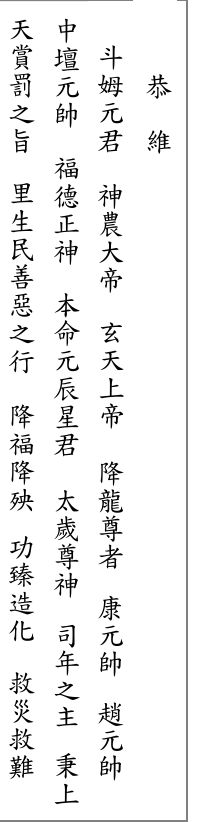 恭維
斗姆元君 神農大帝 玄天上帝 降龍尊者 康元帥 趙元帥
中壇元帥 福德正神 本命元辰星君 太歲尊神 司年之主 秉上
天賞罰之旨 里生民善惡之行 降福降殃 功臻造化 救災救難